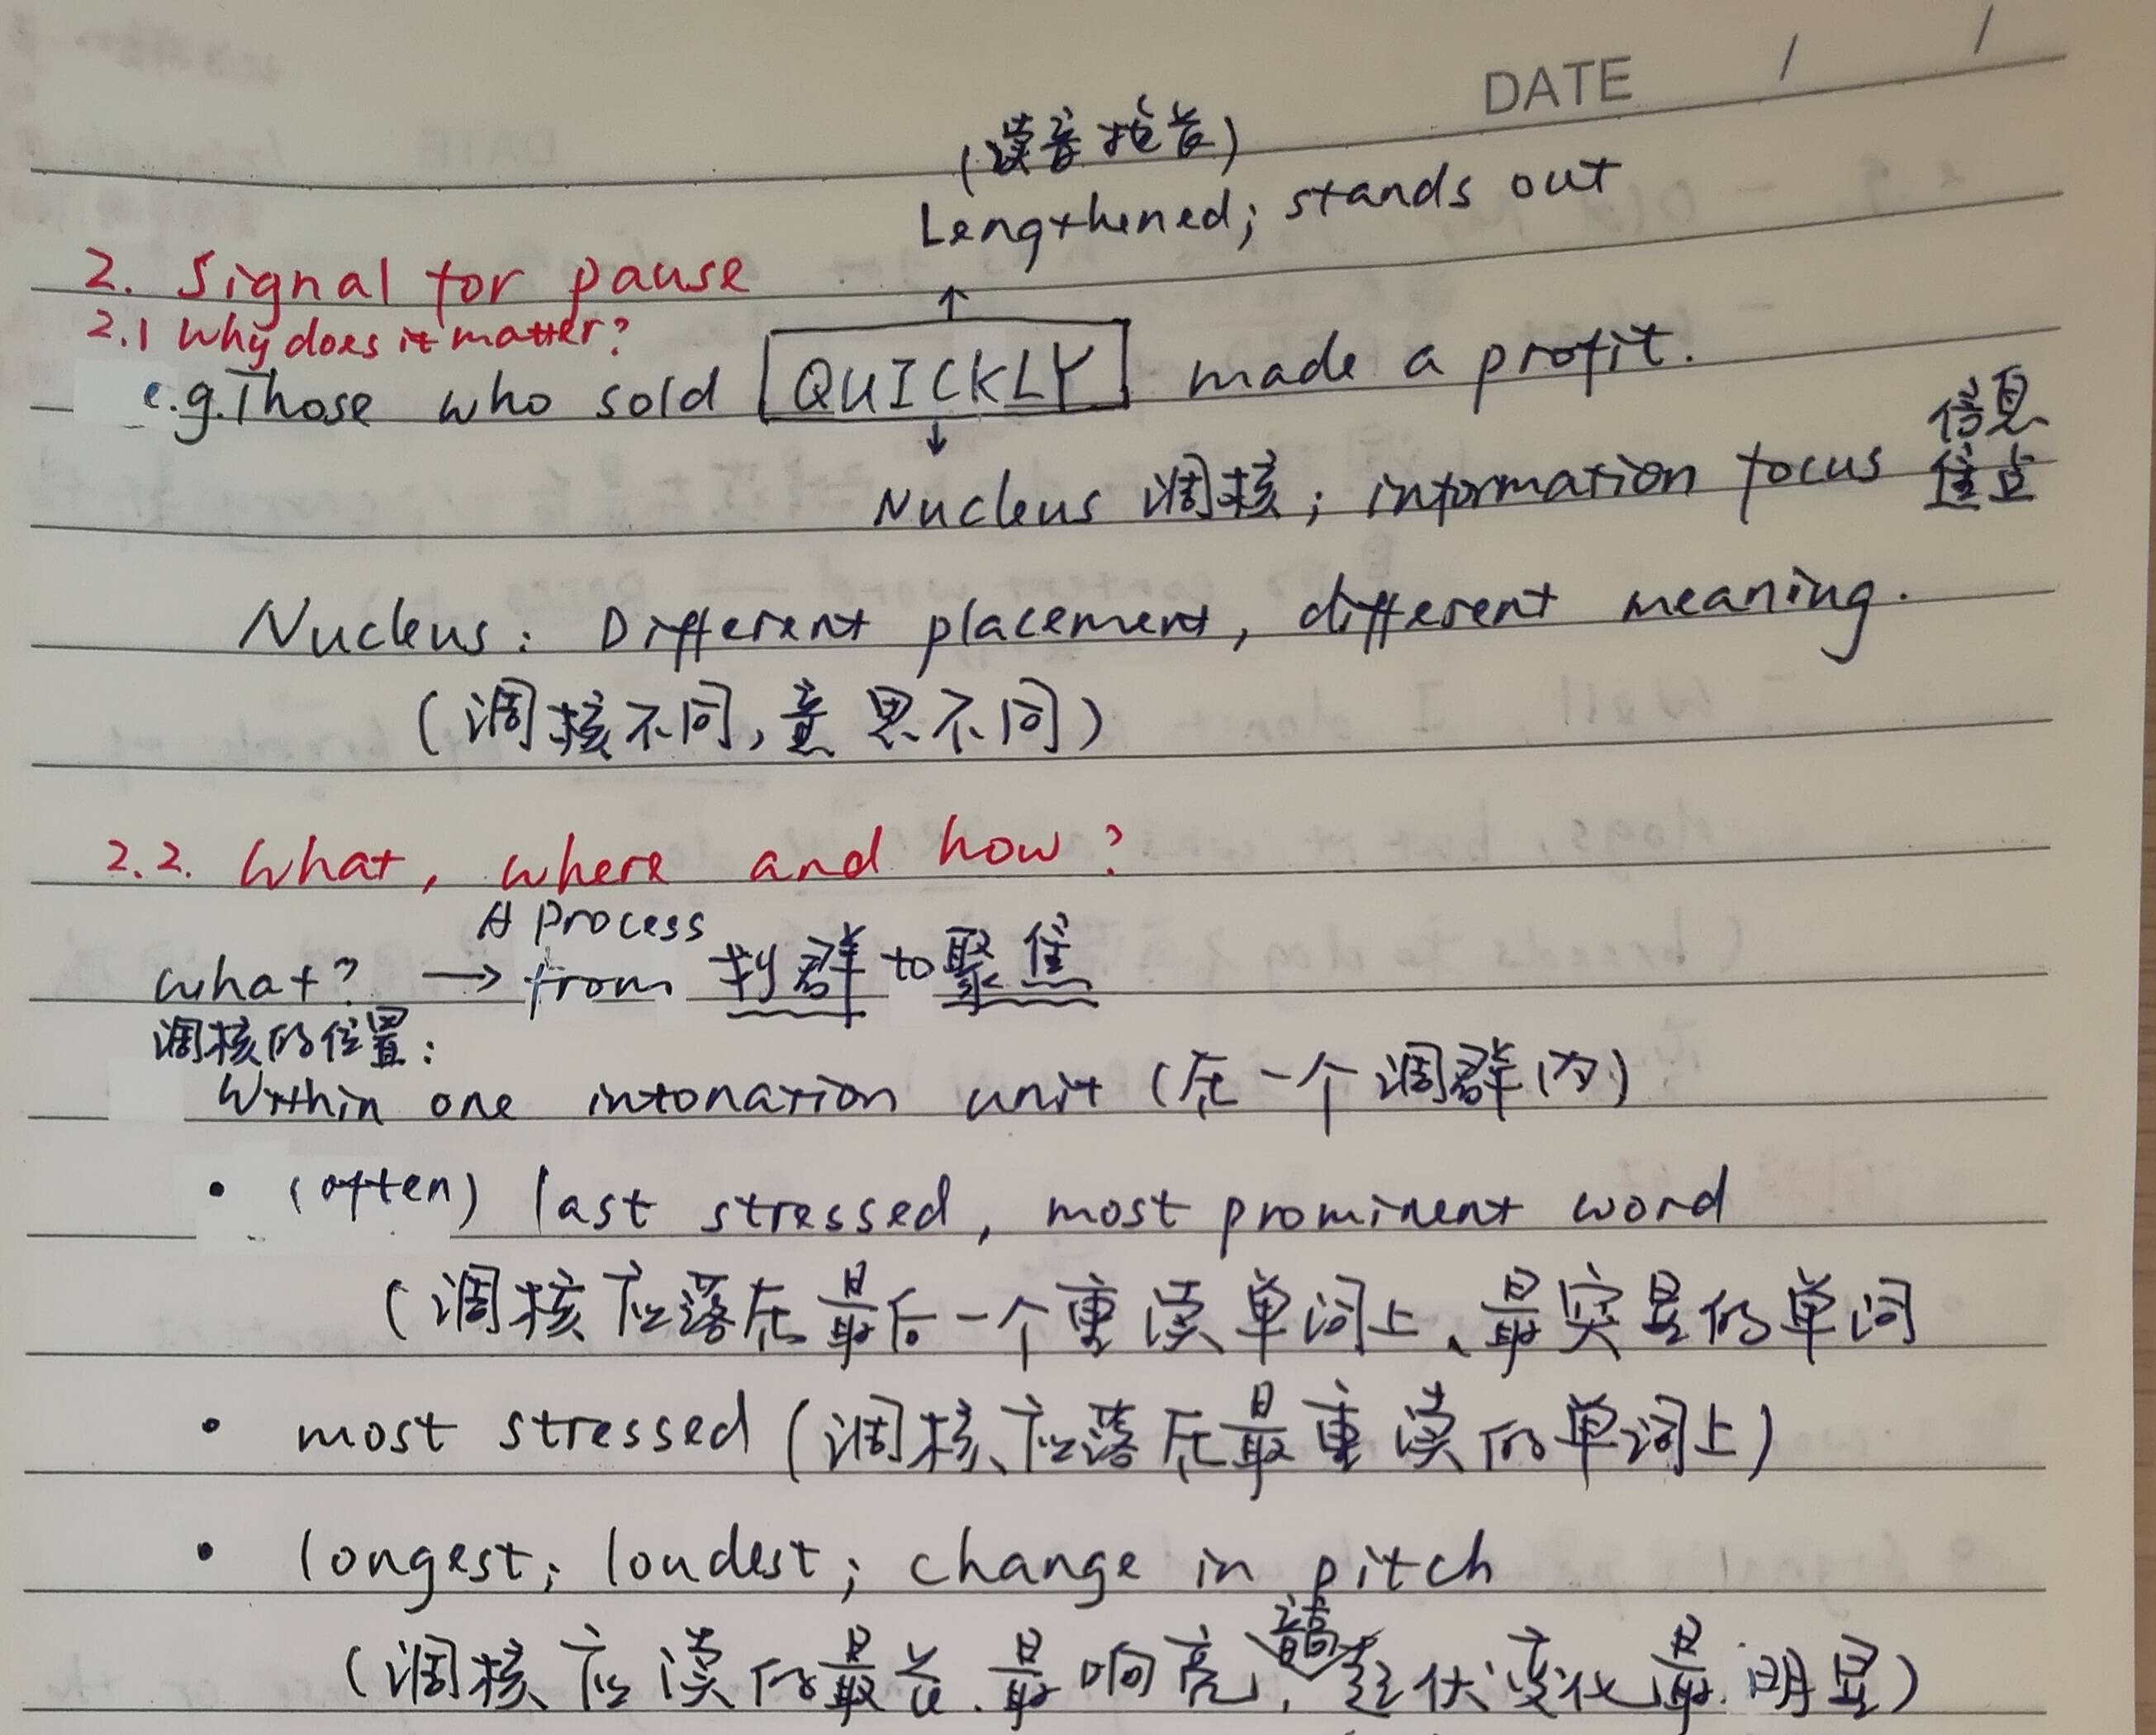 DATE / /
(读音拉长)
Lengthened; stands out
2. Signal for pause
2.1 Why does it matter?
e.g. Those who sold QUICKLY made a profit.
Nucleus 调核; information focus 信息焦点
Nucleus: Different placement, different meaning.
(调核不同,意思不同)
2.2. What, where and how?
A Process
what? → from 划群 to 聚焦
调核的位置:
Within one intonation unit (在一个调群内)
• (often) last stressed, most prominent word
(调核应落在最后一个重读单词上、最突显的单词
• most stressed (调核应落在最重读的单词上)
• longest; loudest; change in pitch
(调核应读的最长、最响亮,音高起伏变化最明显)